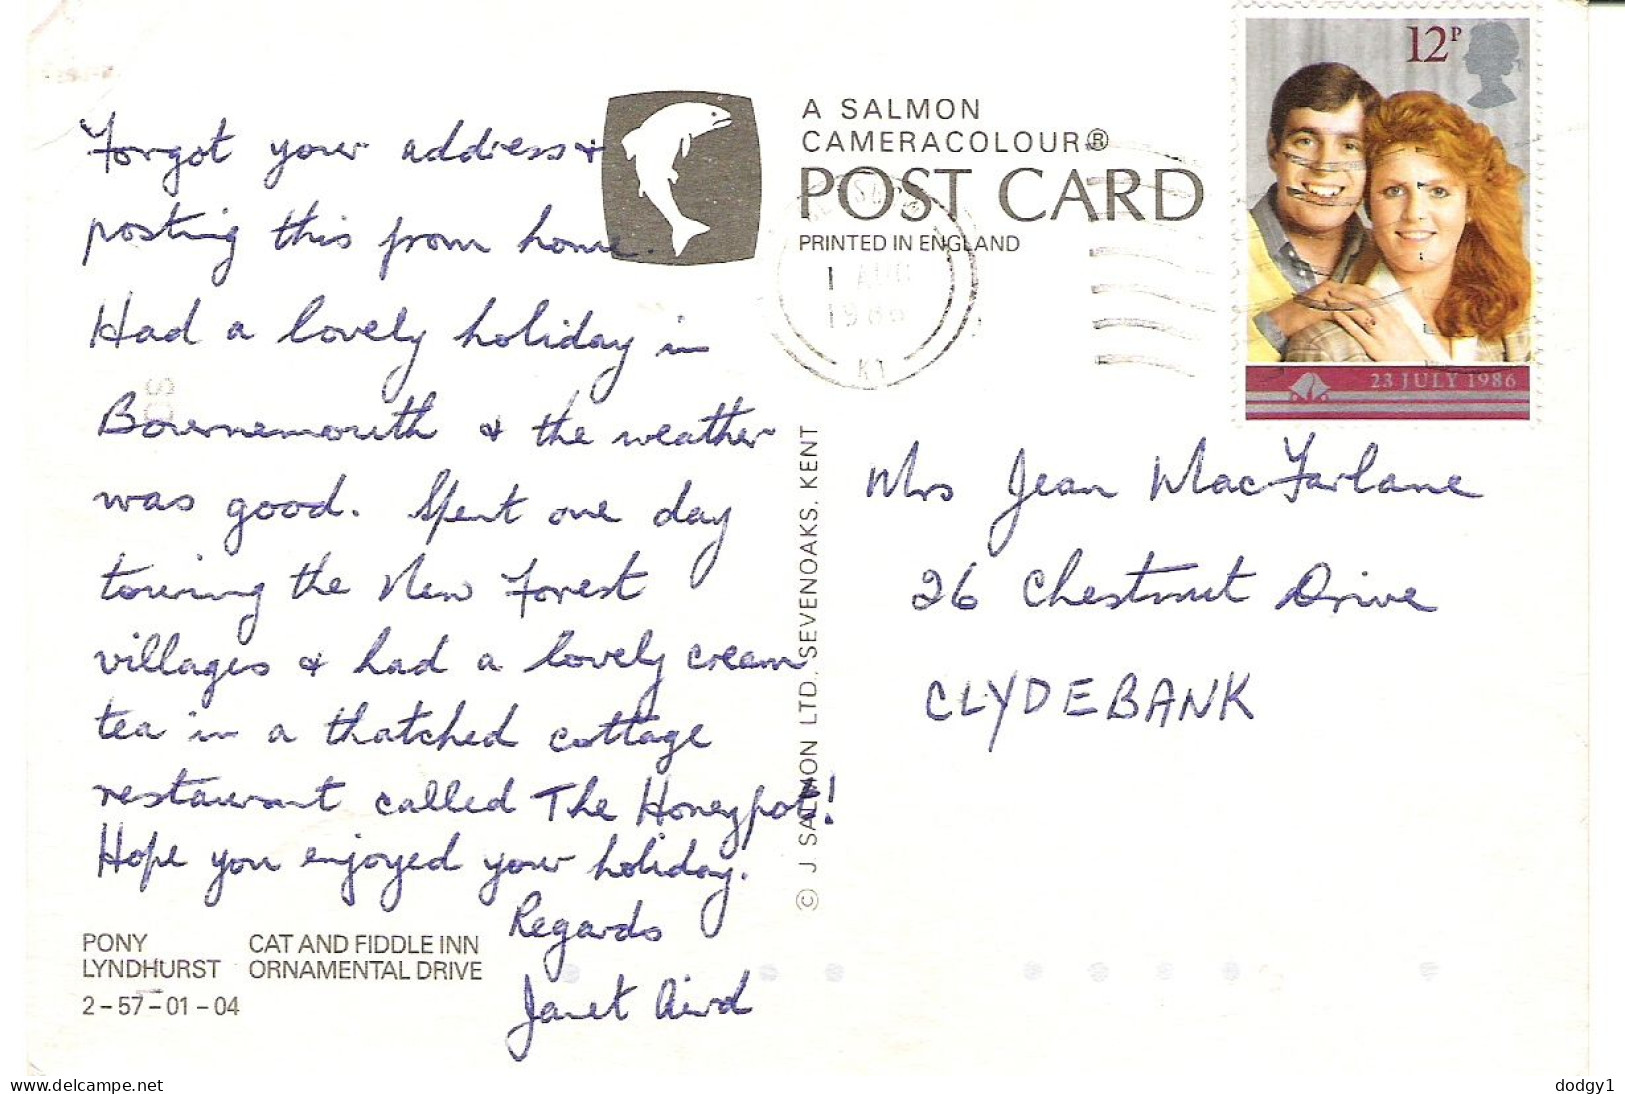 Forgot your address &
posting this from home.
Had a lovely holiday in
Bournemouth & the weather
was good. Spent one day
touring the New Forest
villages & had a lovely cream
tea in a thatched cottage
restaurant called The Honeypot!
Hope you enjoyed your holiday.
Regards
Janet Aird
PONY CAT AND FIDDLE INN
LYNDHURST ORNAMENTAL DRIVE
2-57-01-04
A SALMON
CAMERACOLOUR®
POST CARD
PRINTED IN ENGLAND
1 AUG
1986
© J SALMON LTD. SEVENOAKS. KENT
12P
23 JULY 1986
Mrs Jean MacFarlane
26 Chestnut Drive
CLYDEBANK
www.delcampe.net
dodgy1